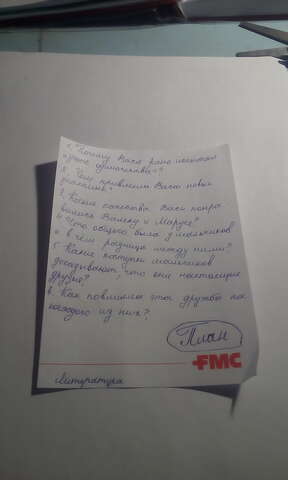 1. Почему Вася рано испытал
чувство одиночества?
2. Чем привлекли Васю новые
знакомые?
3. Какие качества Васи понра
вились Валеку и Марусе?
4. Что общего было у мальчиков
и в чём разница между ними?
5. Какие поступки мальчиков
доказывают, что они настоящие
друзья?
6. Как повлияла эта дружба на
каждого из них?
План
FMC
Литература